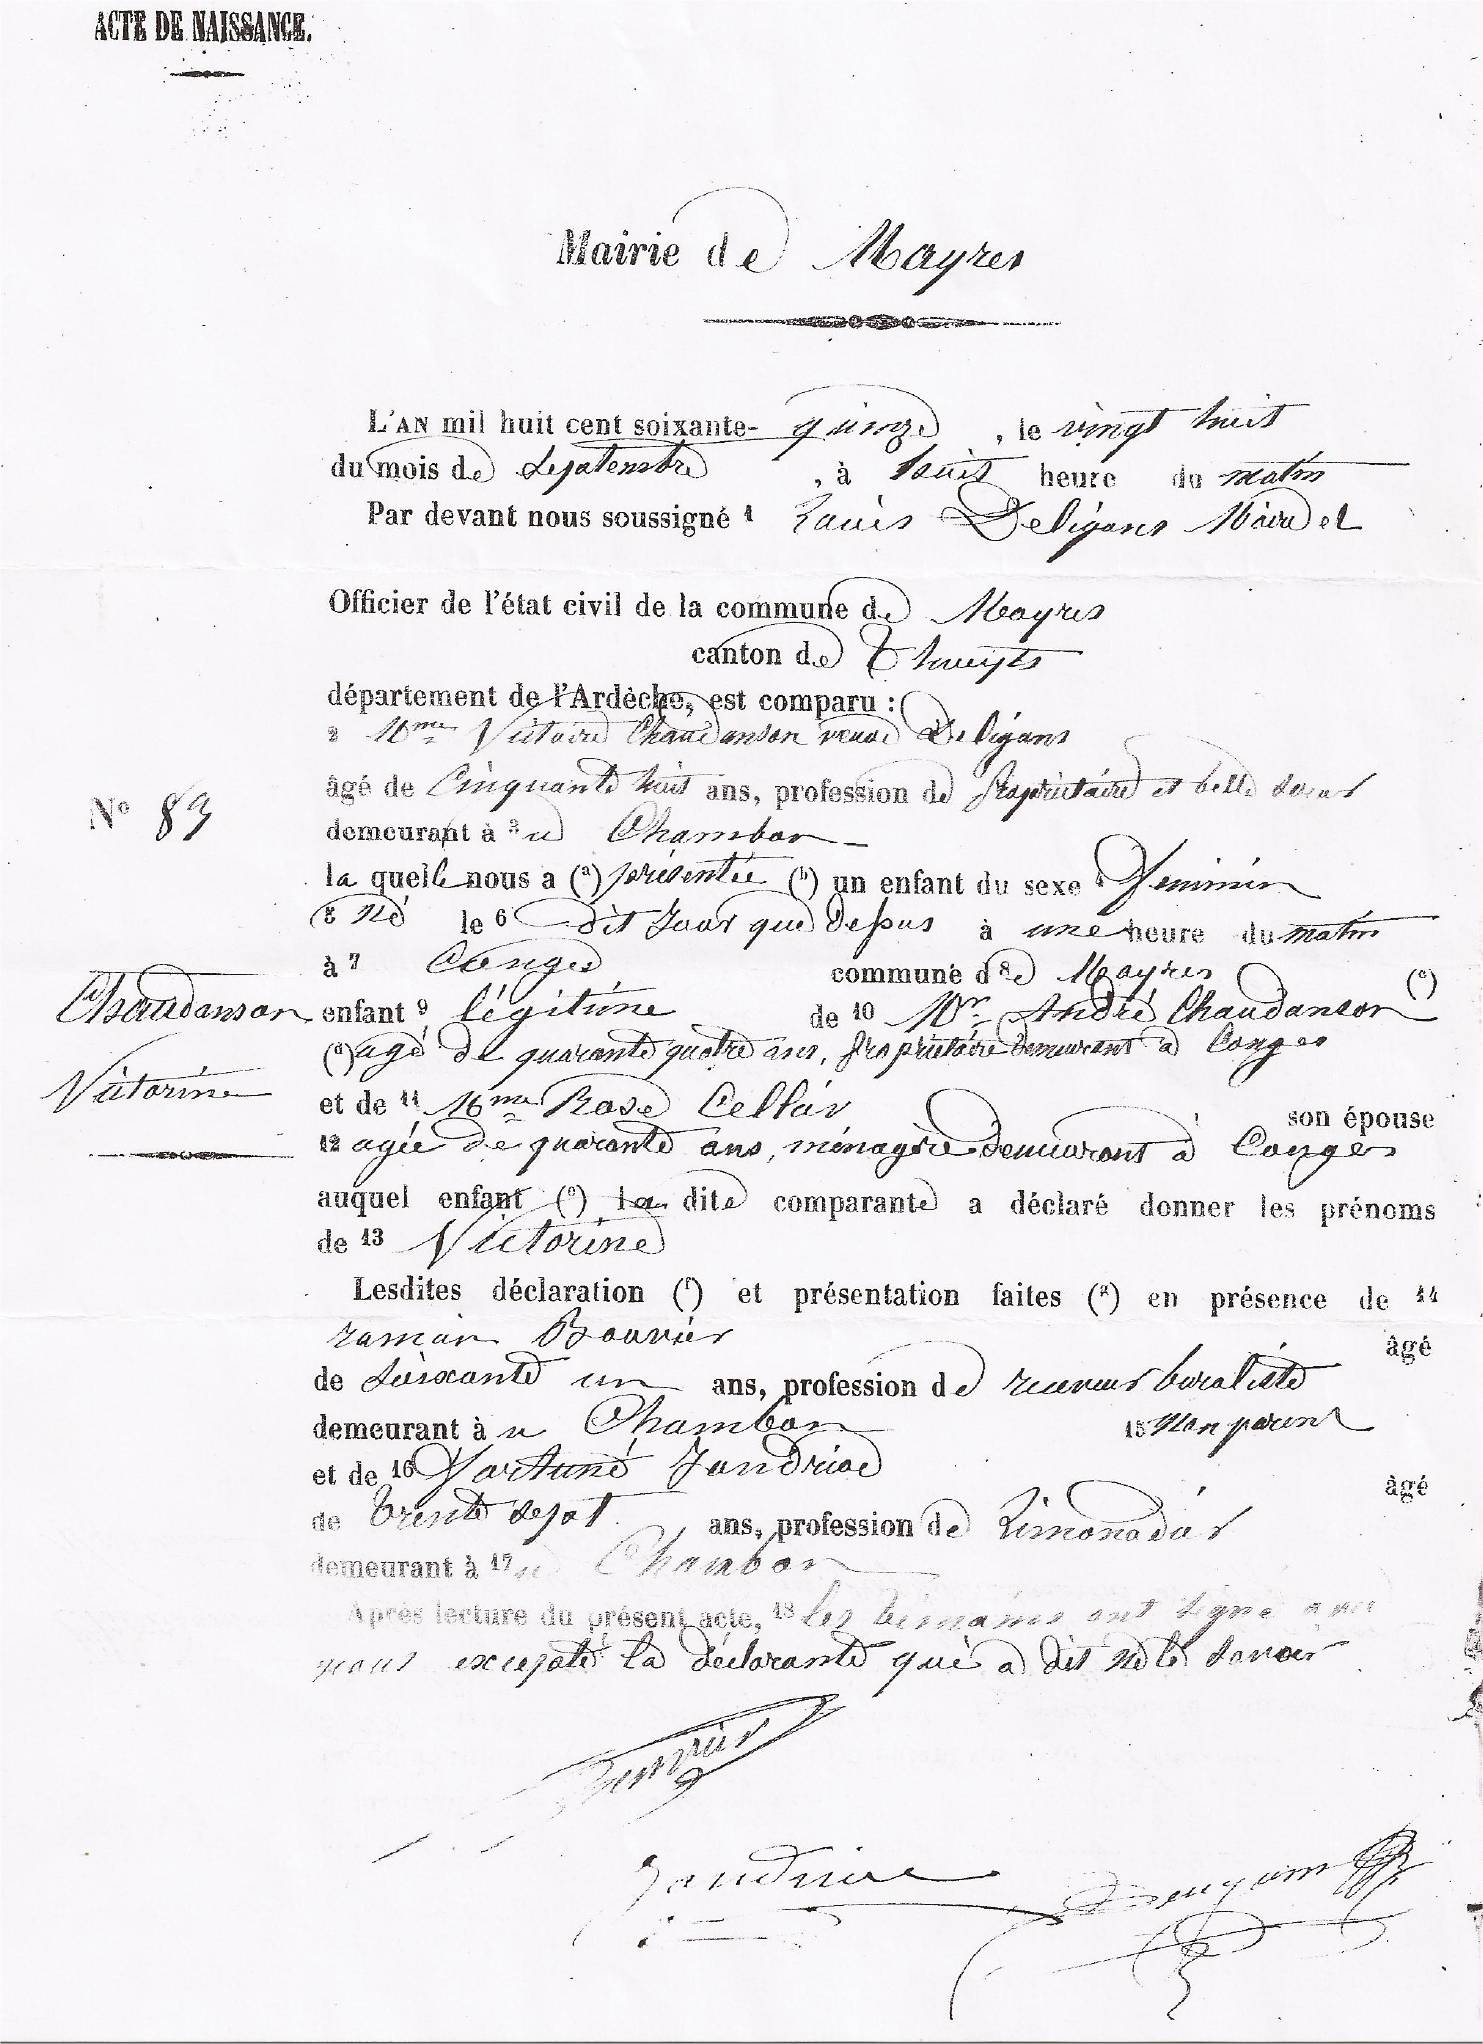 ACTE DE NAISSANCE.
Mairie de Mayres
L'AN mil huit cent soixante- quinze, le vingt huit
du mois de Septembre, à huit heure du matin
Par devant nous soussigné 1 Louis Deligans Maire et
Officier de l'état civil de la commune de Mayres
canton de Thueyts
département de l'Ardèche, est comparu :
2 Mme Victoire Chaudanson veuve Deligans
âgé de Cinquante huit ans, profession de Propriétaire et belle soeur
N° 83
demeurant à 3 u Chambon
la quelle nous a (a) présentée (b) un enfant du sexe 4 féminin
5 né le 6 dit Jour que dessus à une heure du matin
à 7 Conges commune d 8 e Mayres (c)
Chaudanson
Victorine
enfant 9 légitime de 10 Mr André Chaudanson
(d) agé de quarante quatre ans, propriétaire demeurant à Conges
et de 11 Mme Rose Cellier son épouse
12 agée de quarante ans, ménagère demeurant à Conges
auquel enfant (e) la dite comparante a déclaré donner les prénoms
de 13 Victorine
Lesdites déclaration (f) et présentation faites (g) en présence de 14
romain Bouvier âgé
de Soixante un ans, profession de receveur buraliste
demeurant à u Chambon 15 non parent
et de 16 Fortuné Jandrioe âgé
de trente sept ans, profession de Limonadier
demeurant à 17 u Chambon
Après lecture du présent acte, 18 les témoins ont signé avec
nous excepté la déclarante qui a dit ne le savoir
Bouvier